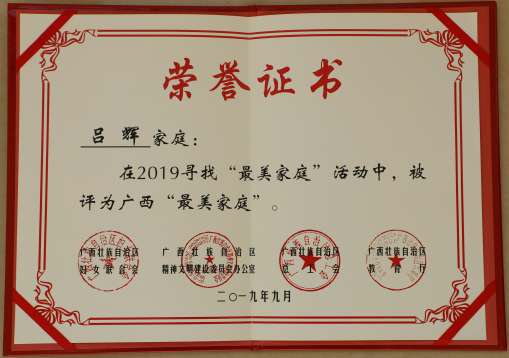 荣誉证书
吕辉 家庭：
在2019寻找“最美家庭”活动中，被
评为广西“最美家庭”。
广西壮族自治区 广西壮族自治区 广西壮族自治区 广西壮族自治区
妇女联合会 精神文明建设委员会办公室 总工会 教育厅
二〇一九年九月